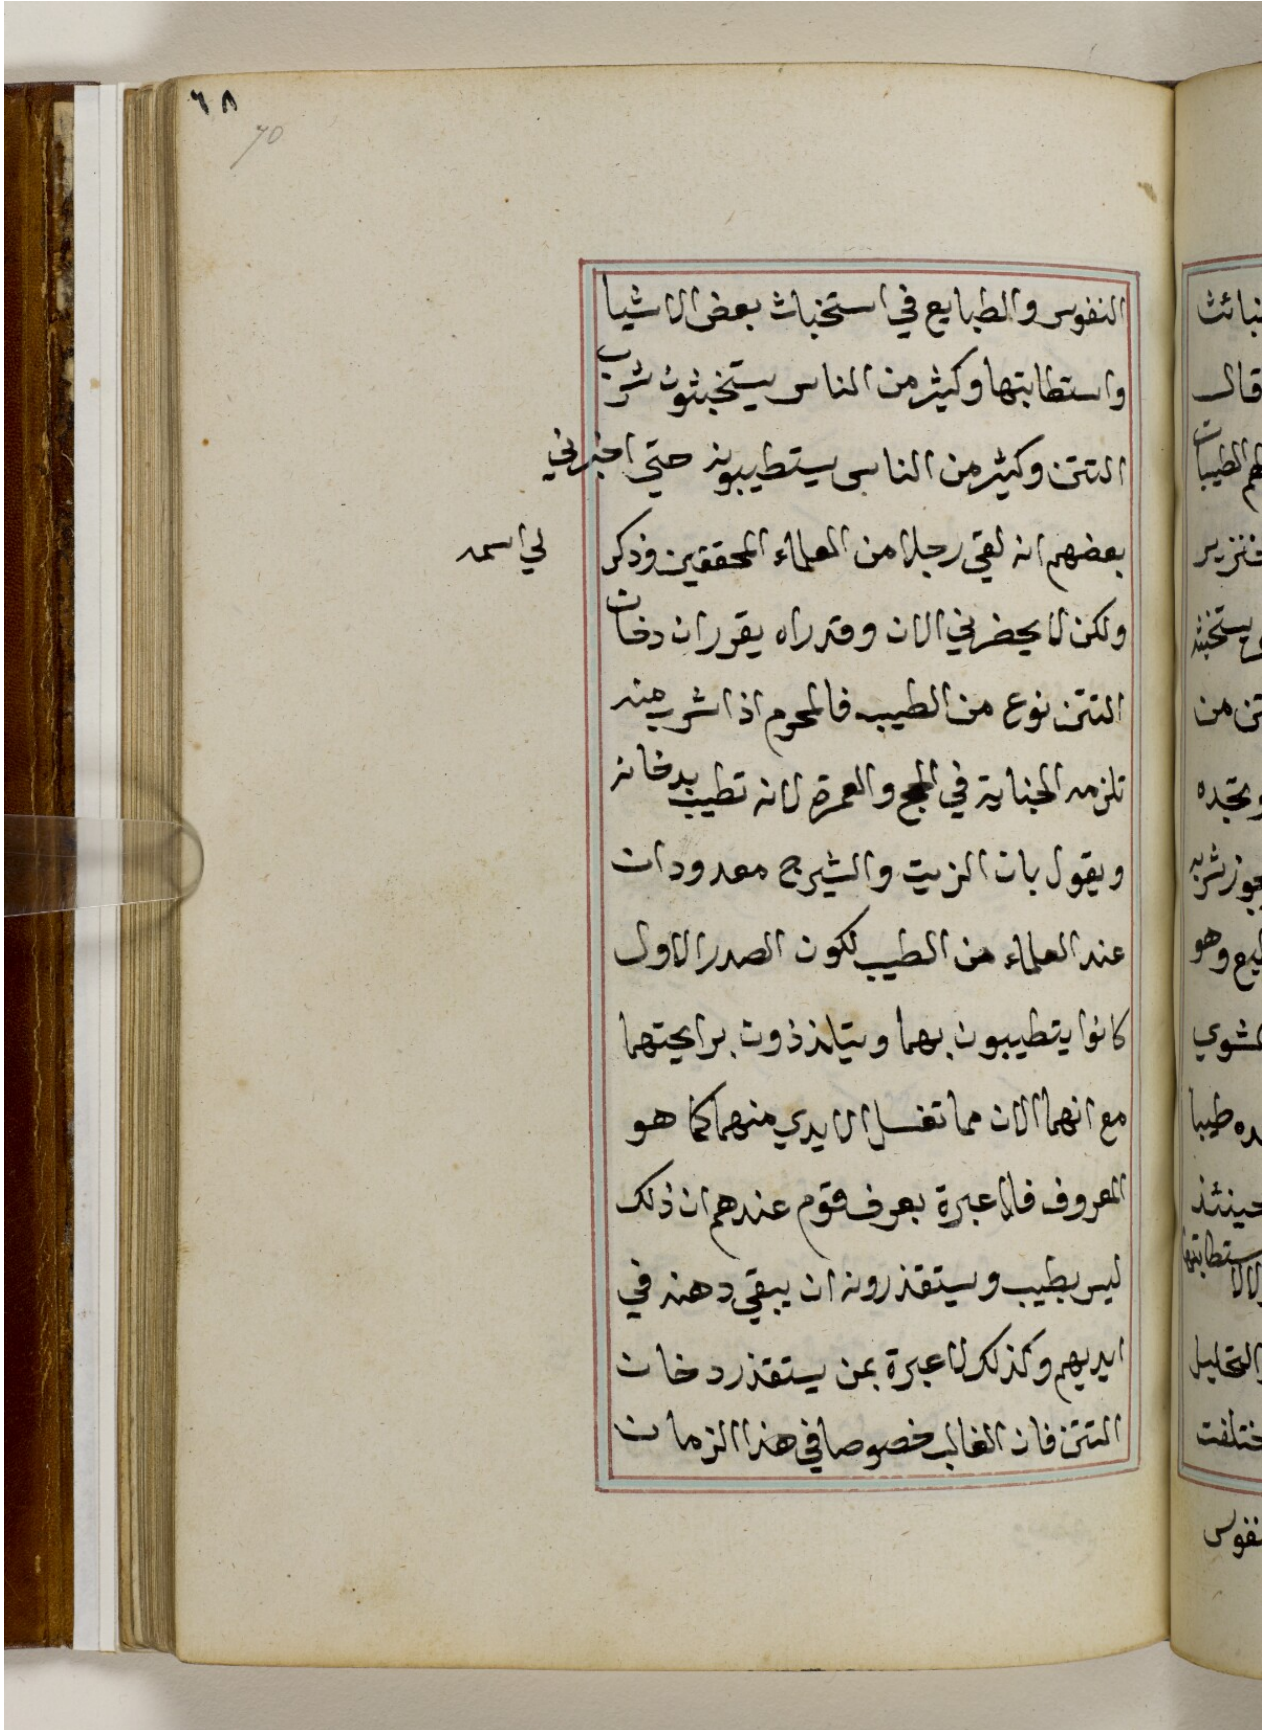 ٦٨
70
النفوس والطبايع في استخباث بعض الاشيا
واستطابتها وكثير من الناس يستخبثون شرب
التتن وكثير من الناس يستطيبونه حتي اخبرني
بعضهم انه لقي رجلا من العلماء المحققين وذكر لي اسمه
ولكن لا يحضرني الان وقد راه يقرر ان دخان
التتن نوع من الطيب فالمحرم اذا شرب منه
تلزمه الجناية في الحج والعمرة لانه تطيب بدخانه
ويقول بان الزيت والشيرج معدودان
عند العلماء من الطيب لكون الصدر الاول
كانوا يتطيبون بهما ويتلذذون برايحتهما
مع انهما الان مما تغسل الايدي منهما كما هو
المعروف فلا عبرة بعرف قوم عندهم ان ذلك
ليس بطيب ويستقذرونه ان يبقي دهنه في
ايديهم وكذلك لا عبرة بمن يستقذر دخان
التتن فان الغالب خصوصا في هذا الزمان
قال
خنزير
ويستخبثه
تن من
وتجده
يجوز شربه
وهو
ده طيبا
حينئذ
استطابتها
والتحليل
ختلفت
نفوس